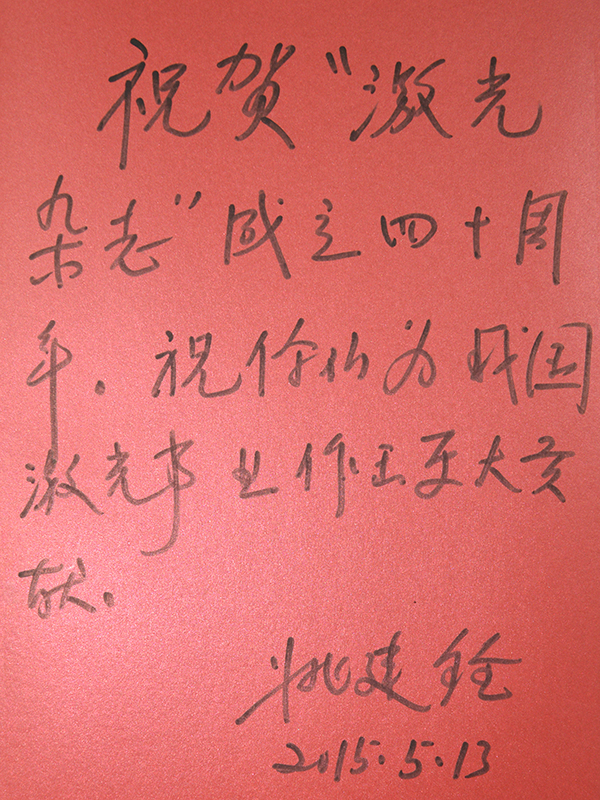 祝贺"激光
杂志"成立四十周
年.祝你们为我国
激光事业作出更大贡
献.
姚建铨
2015.5.13